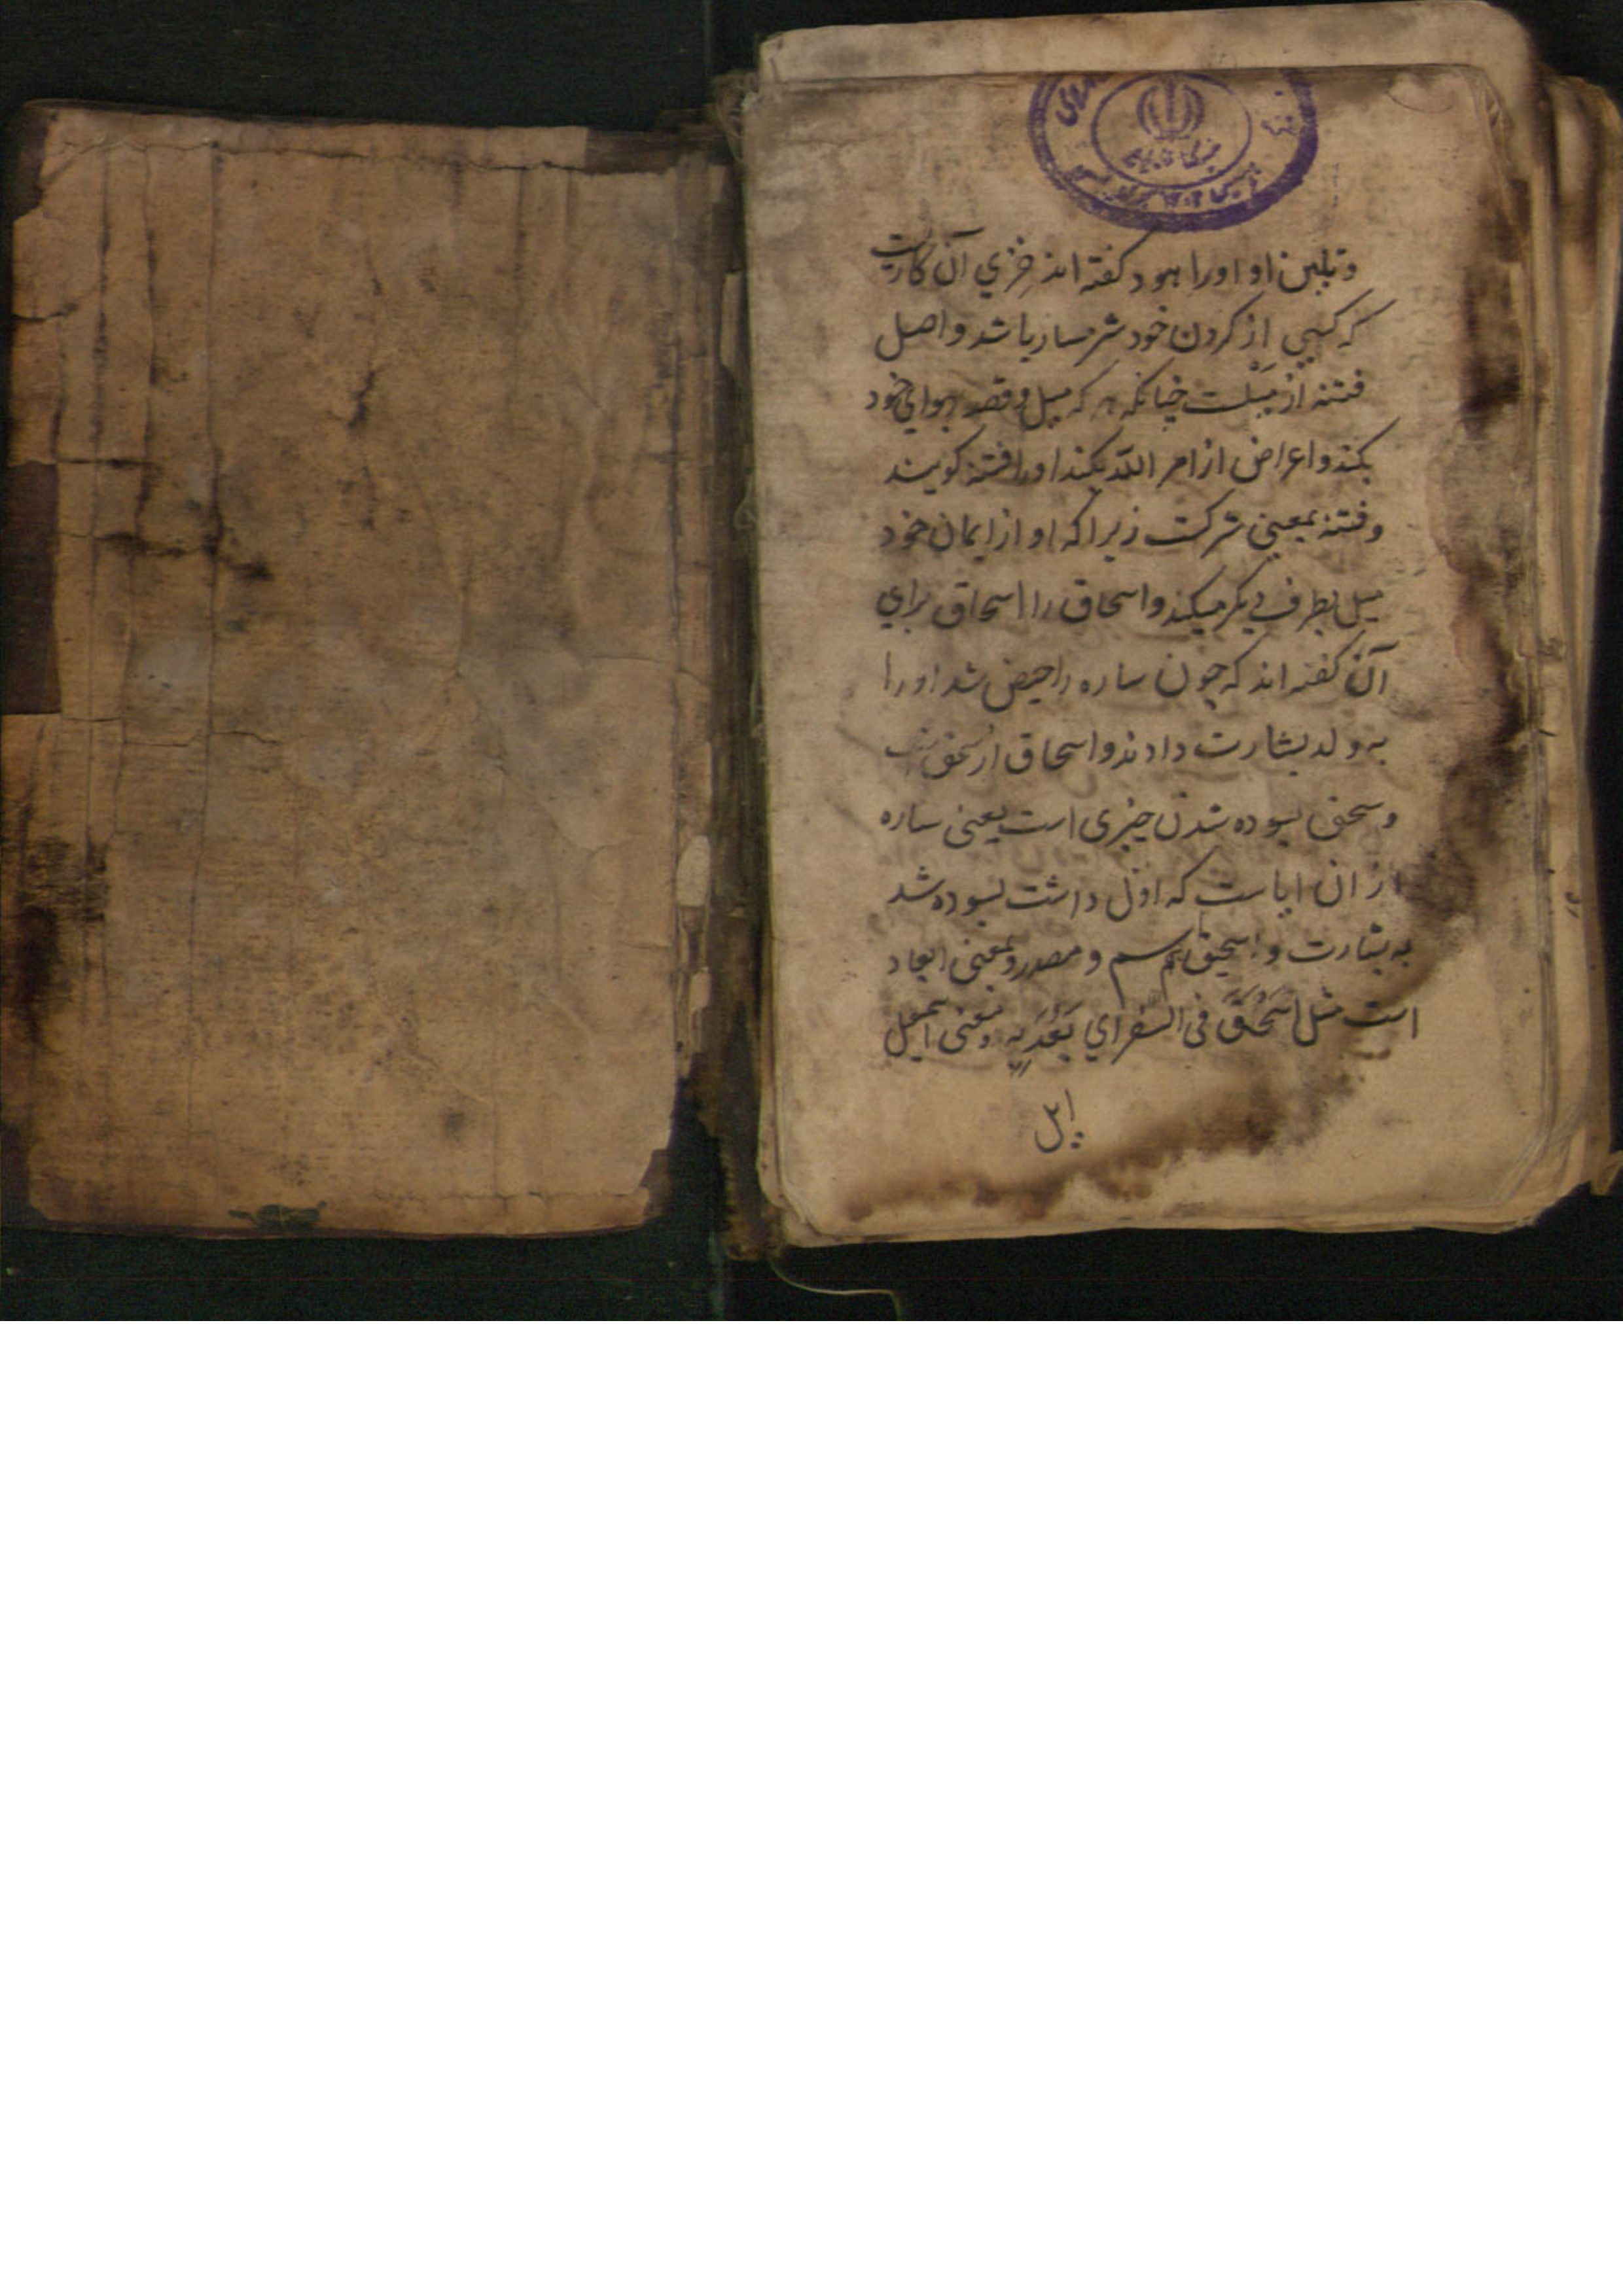 و تلیین او او را هود گفته اند خزي آن کاریست
که کسی از کردن خود شرمسار باشد و اصل
فتنه از میلست چنانکه هر که میل و قصد بهوای خود
بکند و اعراض از امر الله بکند او را فتنه کویند
و فتنه بمعنی شرکت زیرا که او از ایمان خود
میل بطرف دیکر میکند و اسحاق را اسحاق برای
آن گفته اند که چون ساره را حیض شد او را
به ولد بشارت دادند و اسحاق از سحق
و سحق بسوده شدن چیزی است یعنی ساره
از ان ایاست که اول داشت بسوده شد
به بشارت و اسحق هم اسم و مصدر و بمعنی ابعاد
است مثل اسحق فی السفر اي بعد به و معنی اسمعیل